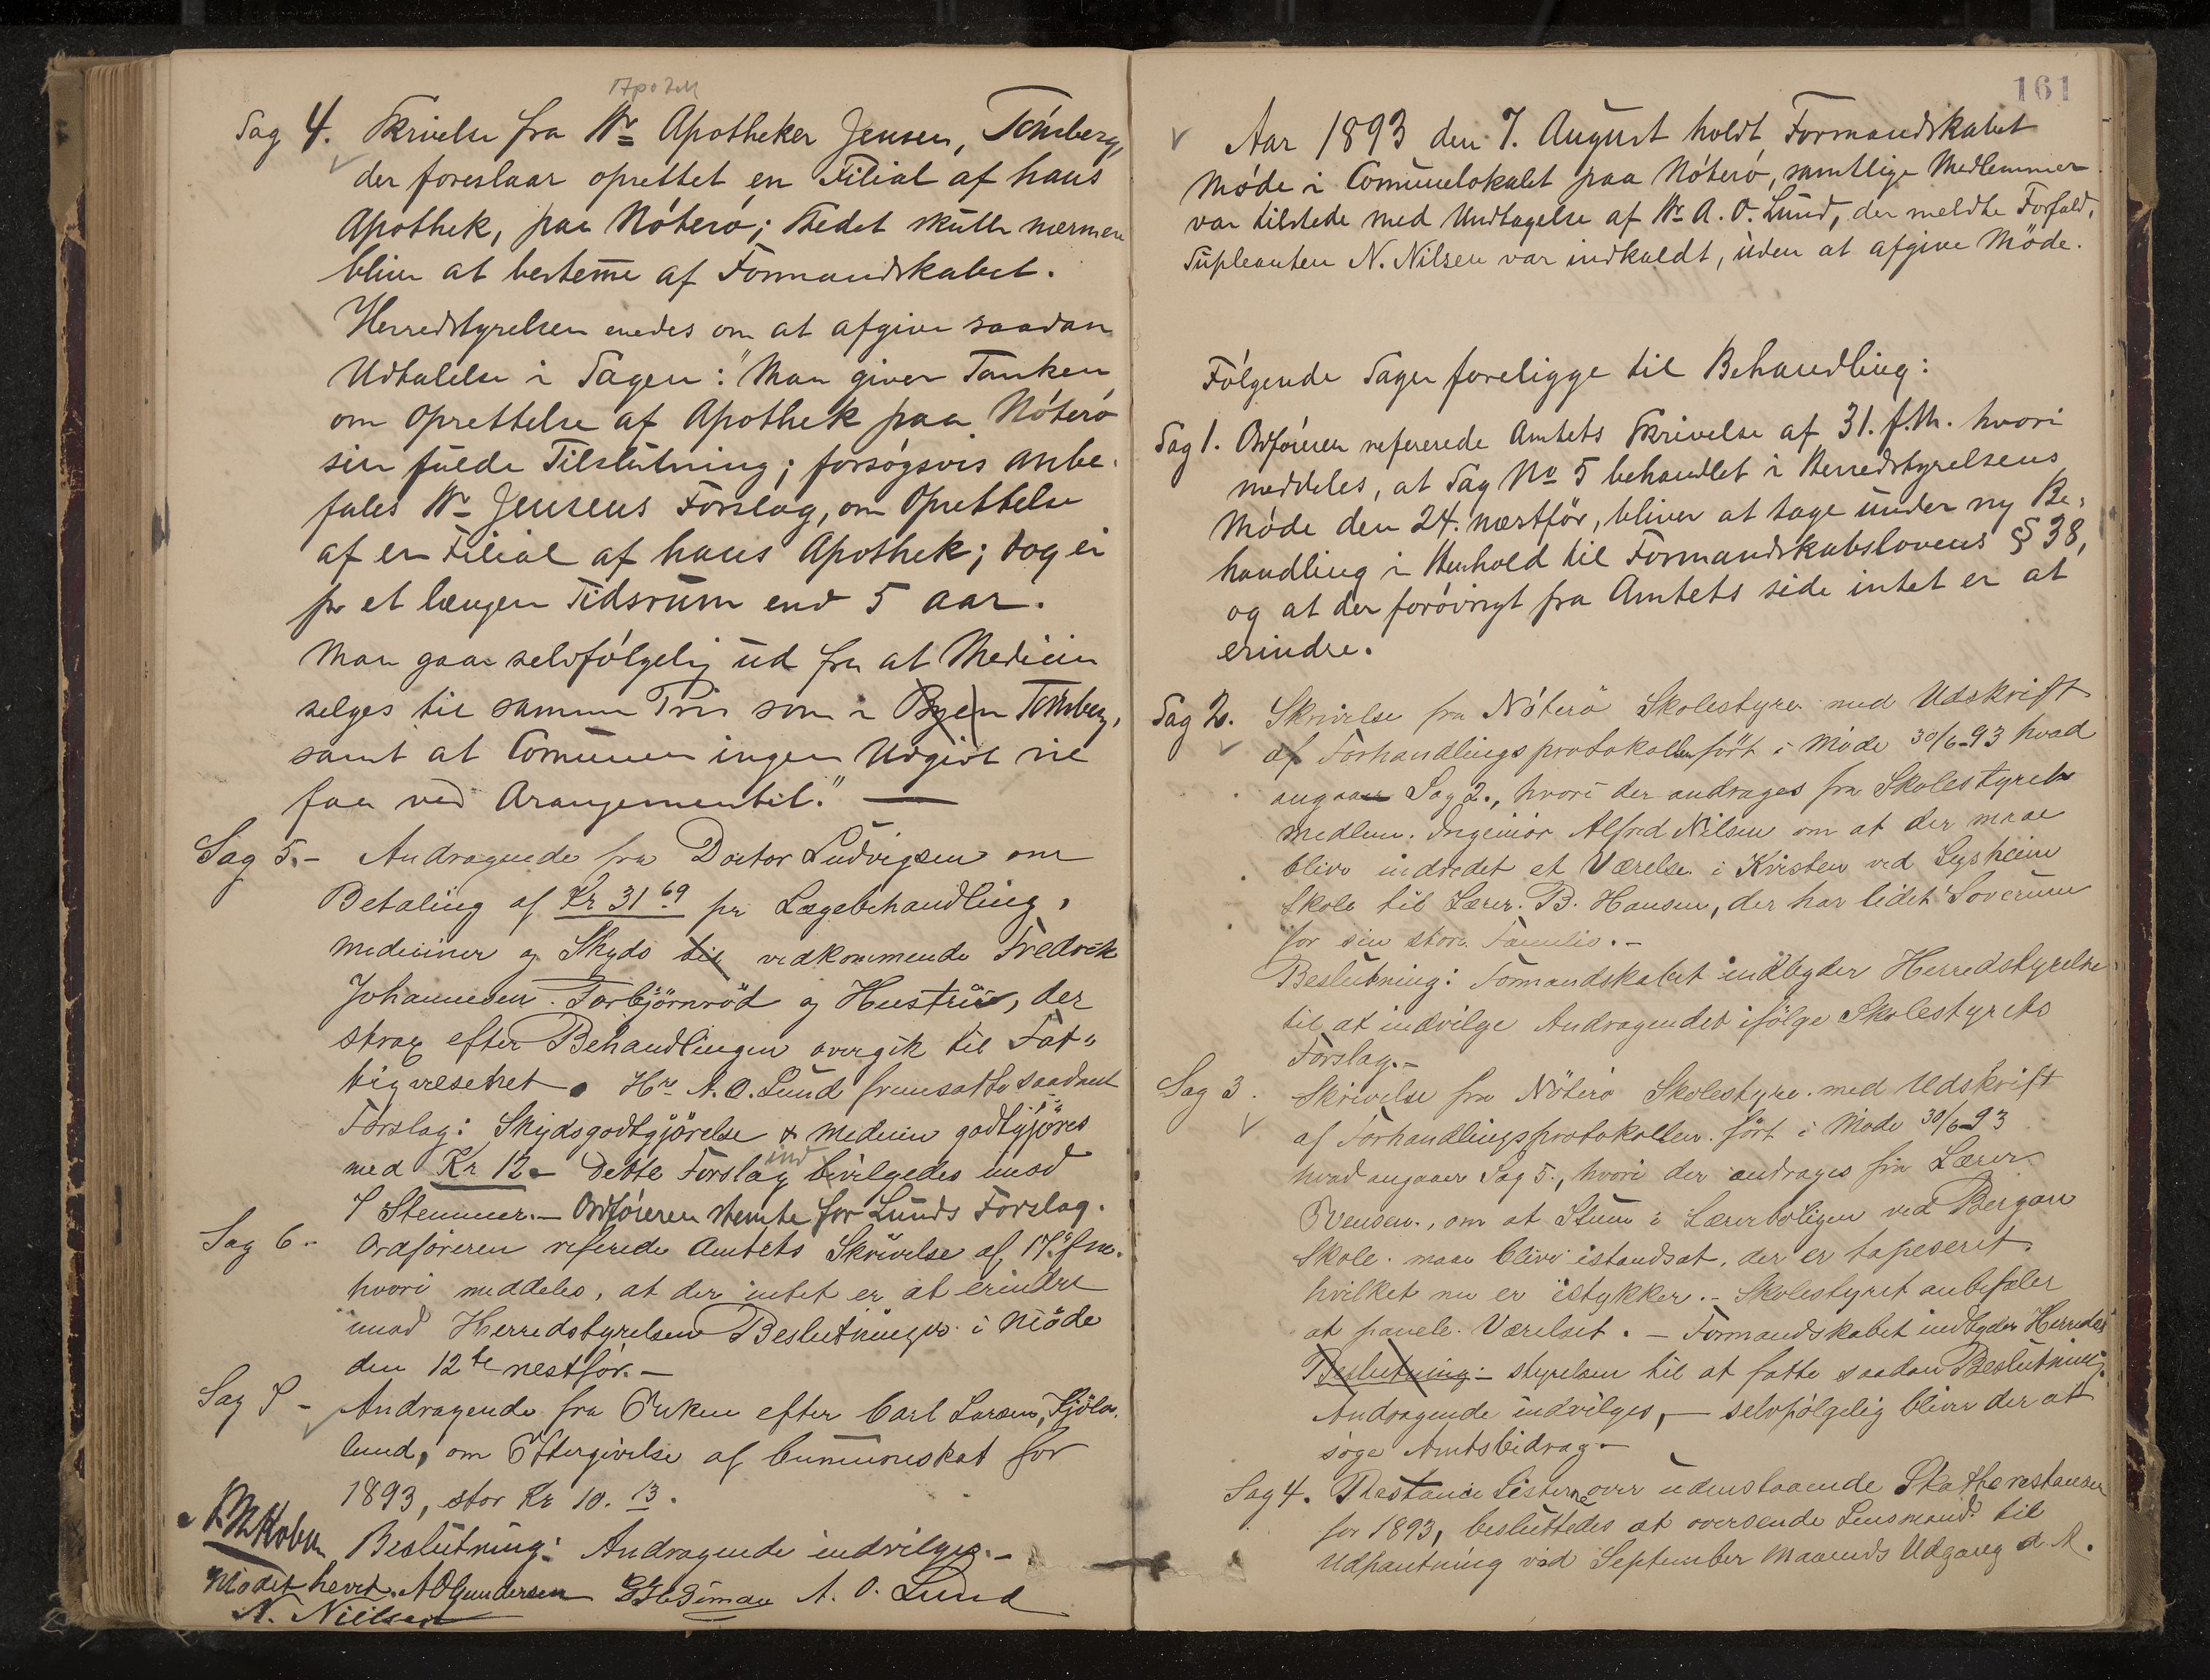 Apothek
Sag 4. Skrivelse fra Hr. Apotheker Jensen, Tönsberg,
der foreslaar oprettet en Filial af hans
Apothek, paa Nöterö; Stedet skulle nærmere
blive at bestemme af Formandskabet.
Herredstyrelsen enedes om at afgive saadan
Udtalelse i Sagen: "Man giver Tanken
om Oprettelse af Apothek paa Nöterö
sin fulde Tilslutning; forsögsvis anbe-
fales Hr. Jensens Forslag, om Oprettelse
af en Filial af hans Apothek; dog ei
for et længere Tidsrum end 5 aar.
Man gaar selvfölgelig ud fra at Medicin
selges til samme Pris som i Byen Tönsberg,
samt at Comunen ingen Udgivt vil
faa ved Arangementet."
Sag 5.- Andragende fra Doctor Ludvigsen om
Betaling af Kr 31 69 for Lægebehandling,
mediciner og Skyds til vedkommende Fredrik
Johannesen Torbjörnröd og Hustru, der
strax efter Behandlingen overgik til Fat-
tigvesenet. Hr. A. O. Lund fremsatte saadant
Forslag: Skydsgodtgjörelse & medicin godtgjöres
med Kr 12.- Dette Forslag indvilgedes imod
7 Stemmer.- Ordföreren stemte for Lunds Forslag.
Sag 6.- Ordföreren referede Amtets Skrivelse af 17. f.m.
hvori meddeles, at der intet er at erindre
imod Herredstyrelsens Beslutninger i Möde
den 12te nestför.-
Sag 7- Andragende fra Enken efter Carl Larsen, Fjölø-
lund, om Eftergivelse af Comuneskat for
1893, stor Kr 10. 13.
Beslutning: Andragende indvilges.-
Mödet hevet. A O Gundersen A. O. Lund
N. Nielsen
161
Aar 1893 den 7. August holdt Formandskabet
Möde i Comunelokalet paa Nöterö, samtlige Medlemmer
var tilstede med Undtagelse af Hr. A. O. Lund, der meldte Forfald,
Supleanten N. Nilsen var indkaldt, uden at afgive Möde.
Fölgende Sager foreligge til Behandling:
Sag 1. Ordföreren refererede Amtets Skrivelse af 31. f.M. hvori
meddeles, at Sag No 5 behandlet i Herredstyrelsens
Möde den 24. næstför, bliver at tage under ny Be-
handling i Henhold til Formandskabslovens § 38,
og at der forövrigt fra Amtets side intet er at
erindre.
Sag 2. Skrivelse fra Nöterö Skolestyre med Udskrift
af Forhandlingsprotokollen fört i Möde 30/6-93 hvad
angaar Sag 2., hvori der andrages fra Skolestyrets
medlem Ingeniör Alfred Nilsen om at der maa
blive indredet et Værelse i Kvisten ved Lysheim
Skole til Lærer B. Hansen, der har lidet Soverum
for sin store Familie.-
Beslutning: Formandskabet indbyder Herredstyrelse
til at indvilge Andragendet ifölge Skolestyrets
Forslag.-
Sag 3. Skrivelse fra Nöterö Skolestyre med Udskrift
af Forhandlingsprotokollen fört i Möde 30/6-93
hvad angaar Sag 5., hvori der andrages fra Lærer
Evensen, om at Stuen i Lærerboligen ved Bergan
Skole maa blive istandsat, der er tapeseret
hvilket nu er istykker.- Skolestyret anbefaler
at panele Værelset. - Formandskabet indbyder Herreds-
Beslutning:- styrelsen til at fatte saadan Beslutning:
Andragende indvilges, - selvfölgelig bliver der at
söge Amtsbidrag.-
Sag 4. Restance Listerne over udenstaaende Skatterestanser
for 1893, besluttedes at oversende Lensmand til
Udpantning ved September Maaneds Udgang d. A.